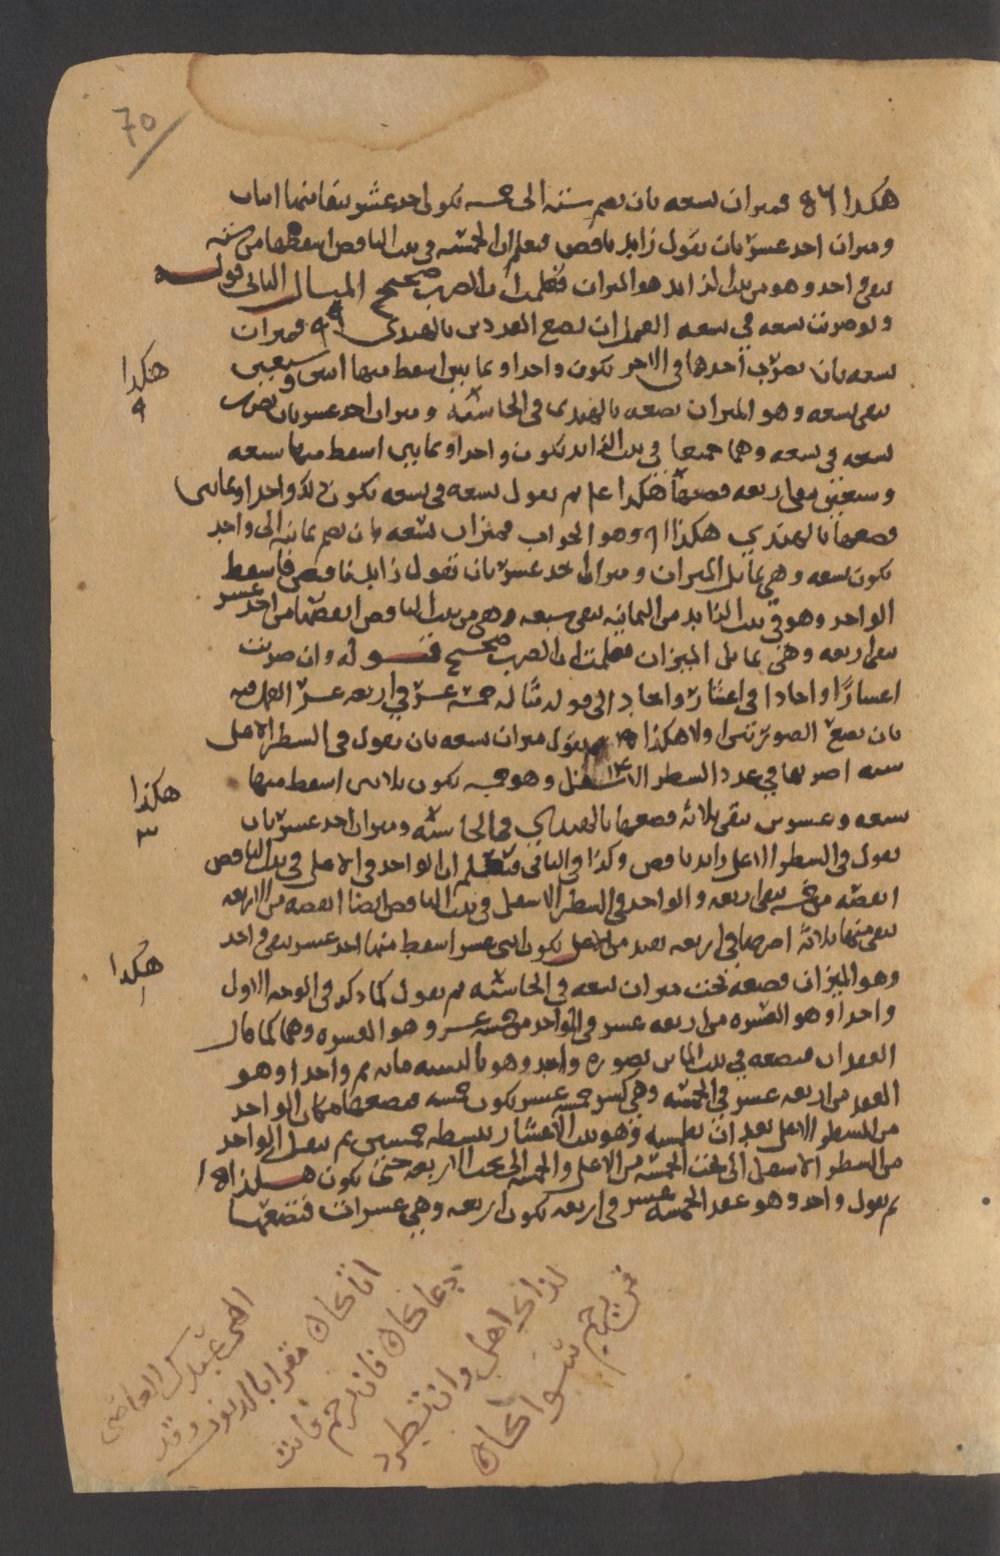 70
هكذا ٨٦ فميزان تسعه بان تضم سته الى خمسه تكون احد عشر
وميزان احد عشر بان تقول زايد ناقص فتعلم ان الخمسه في بيت الناقص اسقطها من سته
يبقى واحد وهو من بيت الزايد هو الميزان فعلمت ان الضرب صحيح المثال الثاني قوله
ولو ضربت تسعه في تسعه العمل ان تضع العددين بالهندي ٩ ٩ فميزان
تسعه بان تضرب أحدهما في الاخر تكون واحدا وثمانين اسقط منها اثنين وسبعين
يبقى تسعه وهو الميزان تضعه بالهندي في الحاشيه وميزان احد عشر بان تضرب
هكذا
٩
تسعه في تسعه وهما جميعا في بيت الزايد تكون واحدا وثمانين اسقط منها سبعه
وسبعين يبقى اربعه فضعها هكذا ثم تقول تسعه في تسعه تكون ذلك واحدا وثمانين
فضعها بالهندي هكذا ٨١ وهو الجواب فميزان تسعه بان تضم ثمانيه الى واحد
تكون تسعه وهي تماثل الميزان وميزان احد عشر بان تقول زايد ناقص فاسقط
الواحد وهو في بيت الزايد من الثمانيه يبقى سبعه وهي من بيت الناقص انقصها من احد عشر
يبقى اربعه وهي تماثل الميزان فعلمت ان الضرب صحيح قوله وان ضربت
اعشارًا واحادا في اعشار واحاد الى قوله مثاله خمسه عشر في اربعه عشر العمل فيه
بان تضع الصورتين اولا هكذا ١٥ ١٤ تقول ميزان تسعه بان تقول في السطر الاعلى
سته اضربها في عدد السطر الاسفل وهو خمسه تكون ثلاثين اسقط منها
سبعه وعشرين يبقى ثلاثه فضعها بالهندي في الحاشيه وميزان احد عشر بان
هكذا
٣
تقول في السطر الاعلى زايد ناقص وكذا في الثاني فتعلم ان الواحد في الاعلى في بيت الناقص
انقصه من خمسه يبقى اربعه والواحد في السطر الاسفل في بيت الناقص ايضا انقصه من الاربعه
يبقى منها ثلاثة اضربها في اربعه تكون اثنى عشر اسقط منها احد عشر يبقى واحد
وهو الميزان فضعه تحت ميزان تسعه في الحاشيه ثم تقول كما ذكر في الوجه الاول
هكذا
١
واحدا وهو العشره من اربعه عشر في الواحد من خمسه عشر وهو العشره وهما كما قال
العقدان فتضعه في بيت المائين بصوره واحد وهو بالنسبه مائه ثم واحدا وهو
العقد من اربعه عشر في الخمسه وهي كسر خمسه عشر تكون خمسه فضعها مكان الواحد
من السطر الاعلى بعد ان تطمسه وهو بيت الاعشار ببسطه خمسين ثم تنقل الواحد
من السطر الاسفل الى تحت الخمسه من الاعلى والخمسه الى تحت الاربعه حتى يكون هكذا
ثم تقول واحد وهو عقد الخمسه عشر في اربعه تكون اربعه وهي عشرات فتضعها
الهى عبدك العاصى
اتاكا مقرا بالذنوب وقد
دعاكا فان ترحم فانت
لذاك اهل وان تطرد
فمن يرحم سواكا